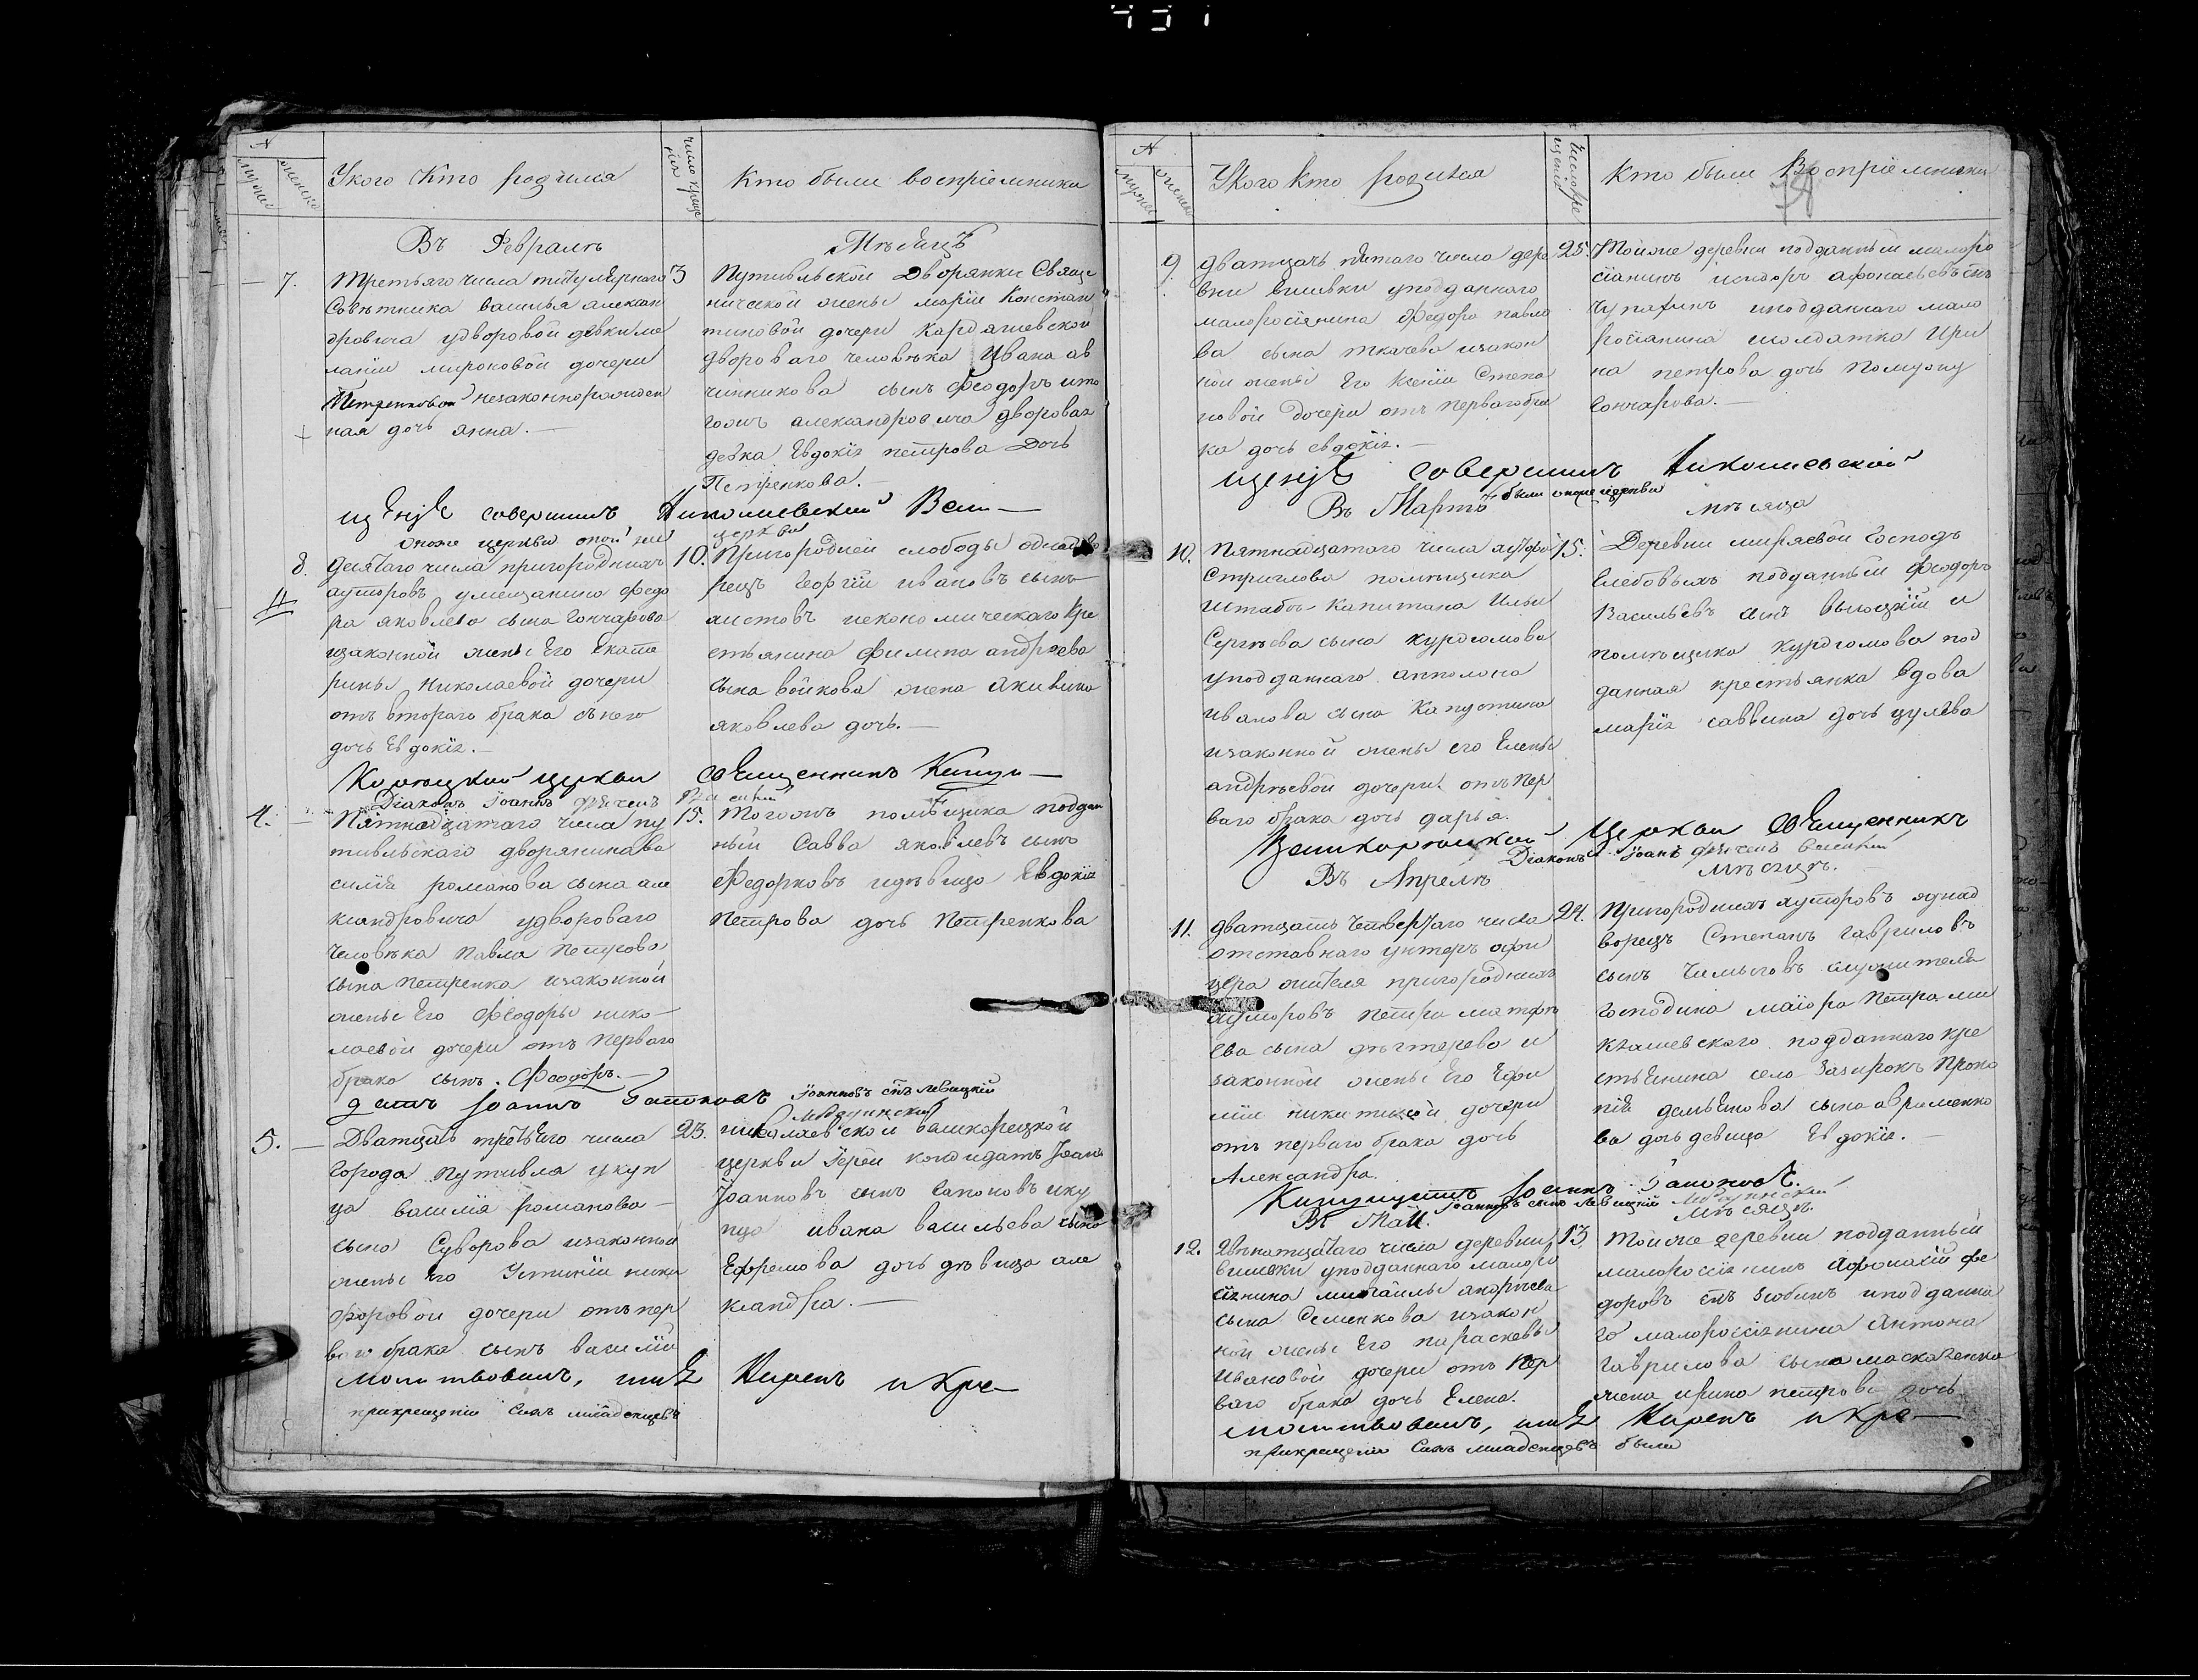 У кого кто родился
число креще
ния
Кто были воспріемники
Въ Февралѣ
Мѣсяцѣ
7.
Третьяго числа титулярнаго
Совѣтника василья алексан
дровича удворовой девки ме
ланіи мироновой дочери
Петренковой незаконнорожден
ная дочь анна. —
3
Путивльской Дворянки Свяще
нической жены маріи Констан
тиновой дочери Кардашевской
двороваго человѣка Ивана ав
чинникова сынъ Феодоръ ито
гожъ александровича дворовая
девка Евдокія петрова Дочь
Петренкова. —
щеніе совершилъ Николаевской Вели —
оноже церкви
церкви
8.
десятаго числа пригородныхъ
хуторовъ умещанина федо
ра яковлева сына Гончарова
изаконной жены Его Екате
рины Николаевой дочери
отъ втораго брака сынего
дочь Евдокія. —
10.
Пригородней слободы однодво
рецъ Георгій ивановъ сынъ
листовъ иекономическаго кре
стьянина филипа андреева
сына войкова жена акилина
яковлева дочь. —
Корецкой церкви священникъ
Діаконъ Іоаннъ
4.
Пятнадцатаго числа пу
тивльскаго дворянина ва
силія романова сына але
ксандровича удвороваго
человѣка Павла Петрова
сына петренка изаконной
жены Его Феодоры нико
лаевой дочери отъ перваго
брака сынъ. Феодоръ. —
15.
Тогожъ помѣщика поддан
ный Савва яковлевъ сынъ
Федорковъ идѣвица Евдокія
петрова дочь Петренкова
датъ Іоаннъ Гапоновъ
Іоанновъ снъ левицкій
5.
Двадцать третьяго числа
города Путивля укуп
ца василія романова —
сына Суворова изаконной
жены его Устиніи ники
форовой дочери отъ пер
ваго брака сынъ василій
23.
николаевской великорецкой
церкви Іерей кандидатъ Іоаннъ
Іоанновъ сынъ Гапоновъ ику
пца ивана васильева сына
Ефремова дочь дѣвица але
ксандра. —
молитвовалъ, имя Нарекъ и Кре —
прикрещеніи сихъ младенцевъ
У кого кто родился
Кто были Воспріемники
9.
двадцать пятаго числа дере
вни вишевки уподданнаго
малоросіянина Федора павло
ва сына ткачева изакон
ной жены Его Ксеніи Степа
новой дочери отъ перваго бра
ка дочь евдокія. —
25.
Тойже деревни подданный малоро
сіанинъ исидоръ афонасьевъ снъ
Чупахинъ иподданнаго мало
росіанина солдатка Ири
на петрова дочь
Гончарова. —
щеніе совершилъ Николаевской
были оноже церкви
Въ Мартѣ
мѣсяца
10.
Пятнадцатаго числа
Стриглова помѣщика
Штабсъ-Капитана Ильи
Сергѣева сына курдюмова
уподданнаго апполона
иванова сына Капустина
изаконной жены его Елены
андрѣевой дочери отъ пер
ваго брака дочь дарья.
15.
Деревни ширяевой Господъ
Глебовыхъ подданный Феодоръ
Васильевъ снъ высоцкій и
помѣщика курдюмова под
данная крестьянка вдова
марія саввина дочь
Великорецкой Церкви священникъ
Діаконъ Іоаннъ
Въ Апрелѣ
мѣсяцѣ.
11.
двадцать четвертаго числа
отставнаго унтеръ офи
цера жителя пригородныхъ
хуторовъ петра матфѣ
ева сына дѣгтерева и
законной жены Его Ефи
міи никитиной дочери
отъ перваго брака дочь
Александра.
24.
Пригородныхъ хуторовъ аднад
ворецъ Степанъ гавриловъ
сынъ служителя
Господина маіора Петра
поддан­наго кре
стьянина села Зазирокъ Проко
пія демьянова сына авраменко
ва дочь девица Евдокія. —
Кандидатъ Іоаннъ Гапоновъ.
Іоанновъ сынъ левицкій
Въ Маи.
мѣсяцѣ
12.
Двѣнатцатаго числа деревни
вишевки уподданнаго малоро
сіянина михайлы андрѣева
сына Семенкова изакон
ной жены Его параскевы
ивановой дочери отъ пер
ваго брака дочь Елена.
13
Тойже деревни подданный
малоросіянинъ Афонасій фе
доровъ снъ зюбинъ иподданна
го малоросіянина Антона
гаврилова сына
жена ирина петрова дочь
молитвовалъ, имя Нарекъ и Кре —
прикрещеніи сихъ младенцевъ были